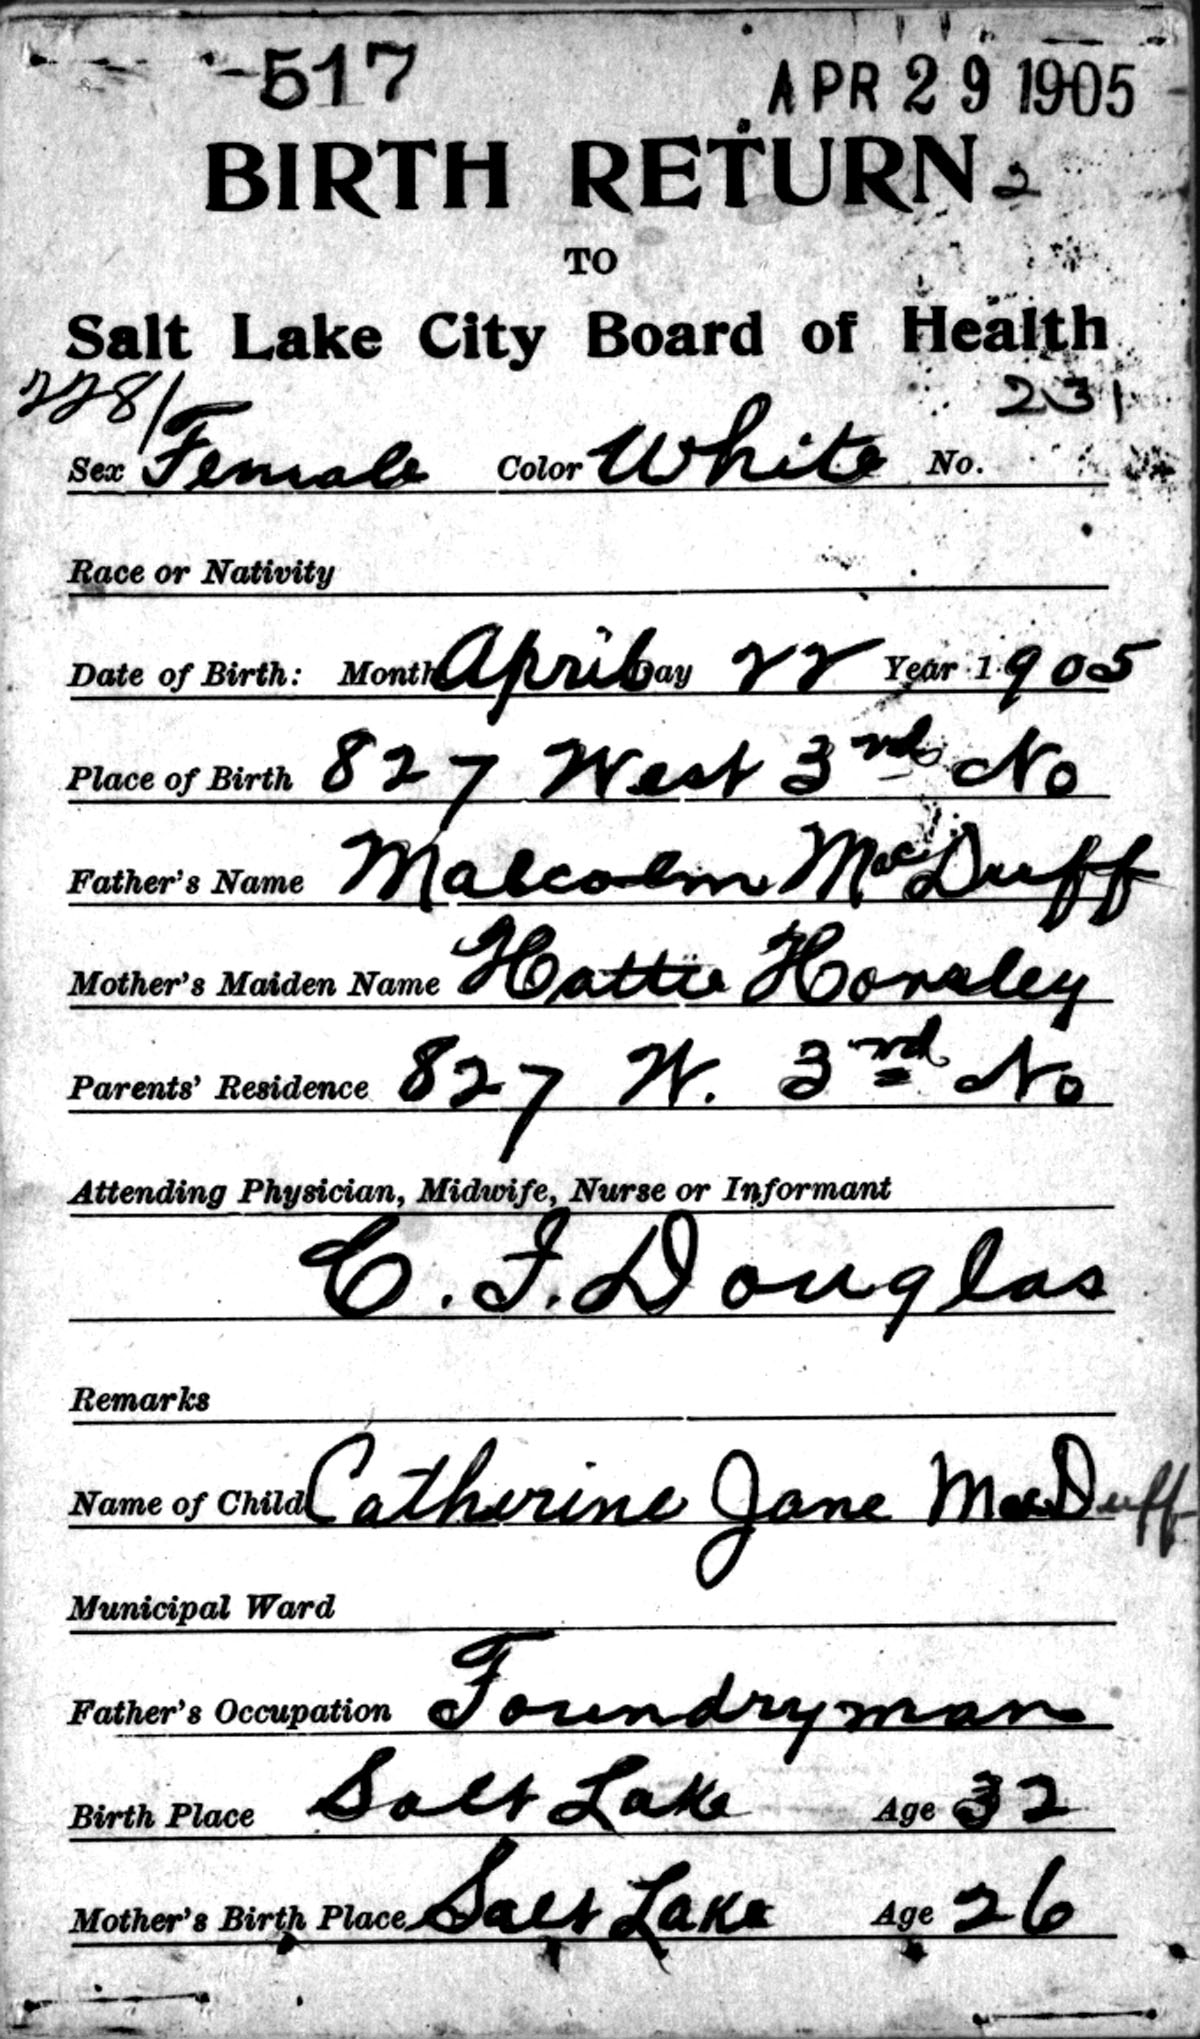 517 APR 29 1905
BIRTH RETURN 2
TO
Salt Lake City Board of Health
2281 231
Sex Female Color White No.
Race or Nativity
Date of Birth: Month April Day 22 Year 1905
Place of Birth 827 West 3rd No
Father's Name Malcolm MacDuff
Mother's Maiden Name Hattie Horsley
Parents' Residence 827 W. 3rd No
Attending Physician, Midwife, Nurse or Informant
C. F. Douglas
Remarks
Name of Child Catherine Jane MacDuff
Municipal Ward
Father's Occupation Foundryman
Birth Place Salt Lake Age 32
Mother's Birth Place Salt Lake Age 26